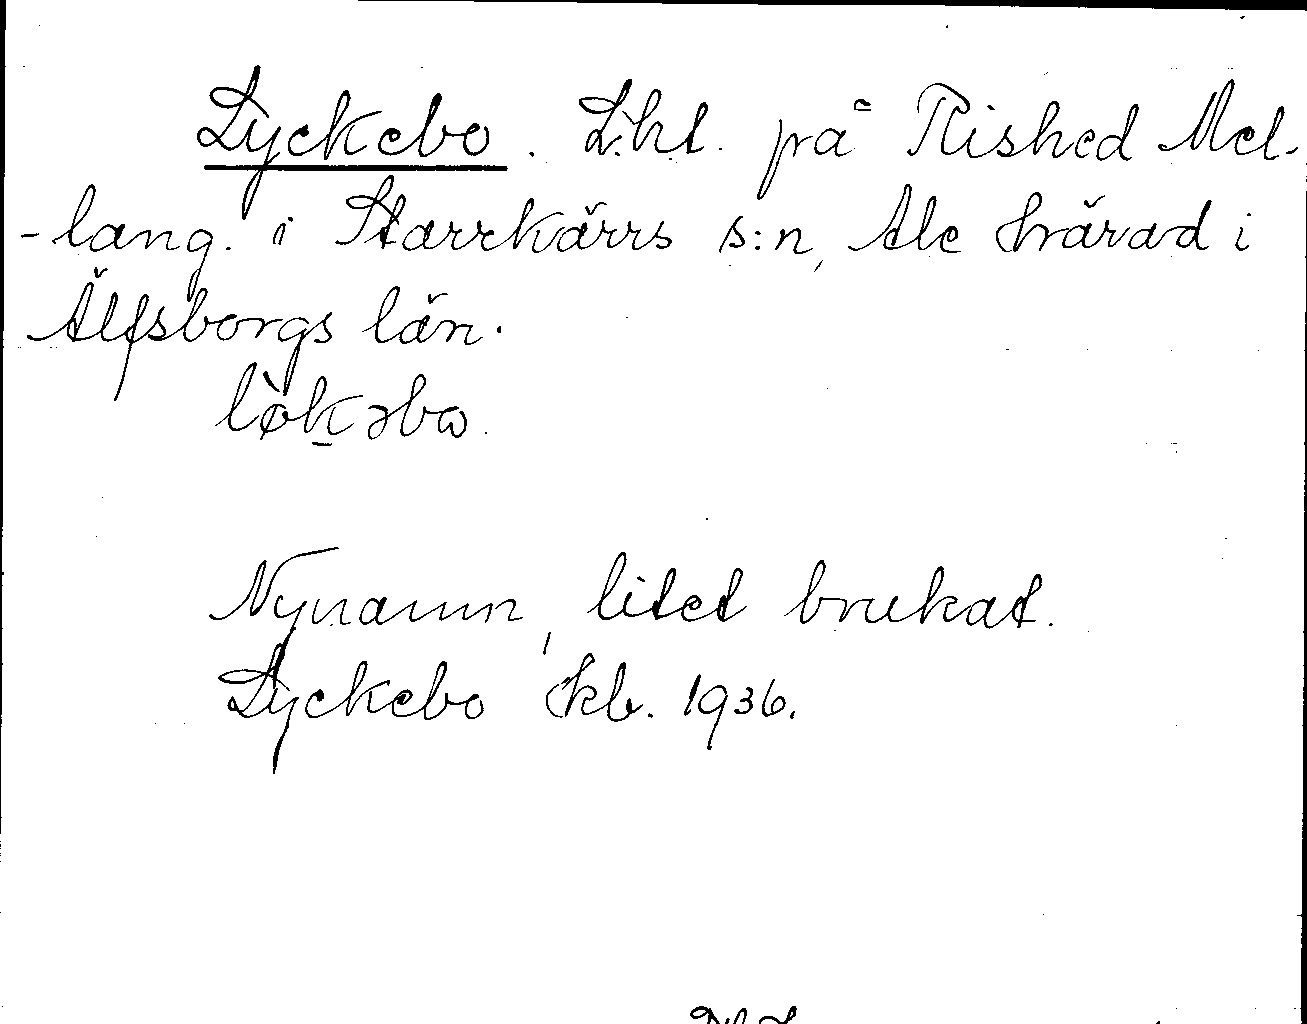 Lyckebo. L:ht. på Rished Mel-
-lang. i Starrkärrs s:n, Ale härad i
Älfsborgs län.
lø̀kəbω.
Nynamn, litet brukat.
Lyckebo Kb. 1936.